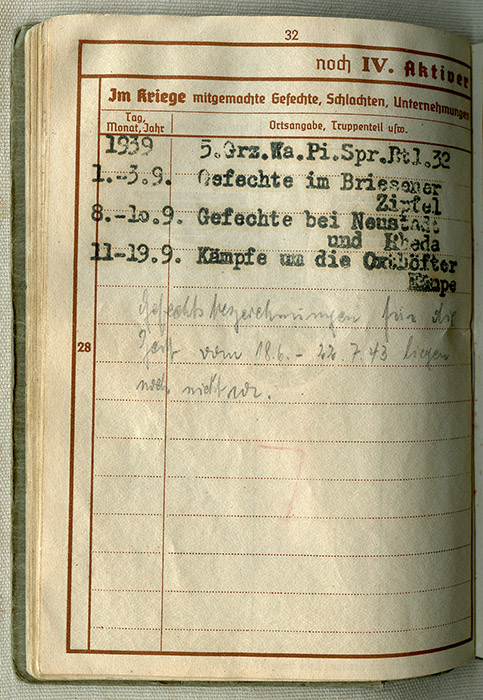 32
noch IV. Aktiver
Im Kriege mitgemachte Gefechte, Schlachten, Unternehmungen
Tag, Monat, Jahr
Ortsangabe, Truppenteil usw.
1939 5.Grz.Wa.Pi.Spr.Btl.32
1.-3.9. Gefechte im Briesener
Zipfel
8.-10.9. Gefechte bei Neustadt
und Rheda
11-19.9. Kämpfe um die Oxthöfter
Kämpe
Gefechtsbezeichnungen für die
28
Zeit vom 18.6.- 22.7.43 liegen
noch nicht vor.